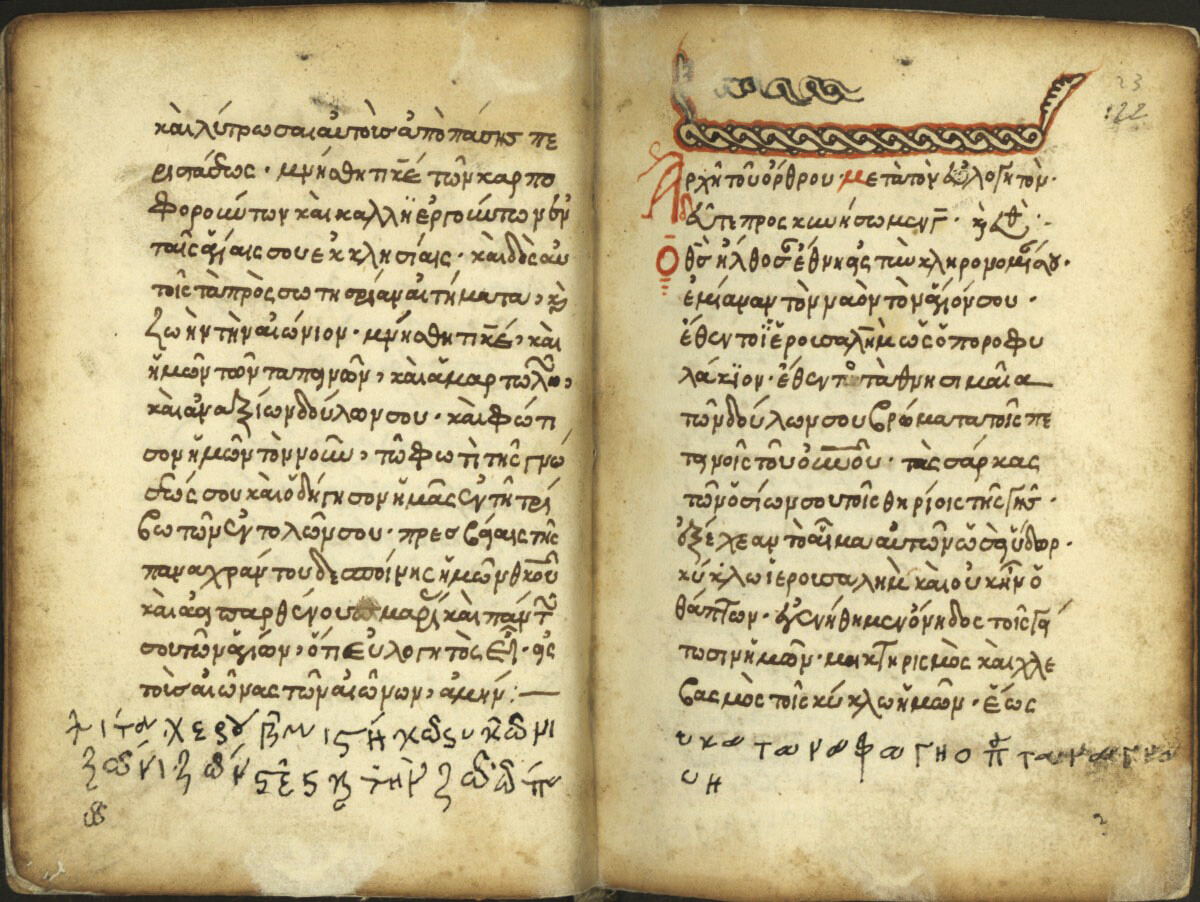 καὶ λύτρωσαι αὐτοὺς ἀπὸ πάσης πε
ριστάσεως · μνήσθητι κε τῶν καρπο
φορούντων καὶ καλλϊεργούντων ἐν
ταῖς ἁγίαις σου ἐκκλησίαις · καὶ δὸς αὐ
τοῖς τὰ πρὸς σωτηρίαν αἰτήματα, κὶ
ζωὴν τὴν αἰώνιον · μνήσθητι κε, καὶ
ἡμῶν τῶν ταπεινῶν, καὶ ἁμαρτωλῶν,
καὶ ἀναξίων δούλων σου · καὶ φώτι
σον ἡμῶν τὸν νοῦν, τῶ φωτὶ τῆς γνώ
σεώς σου καὶ ὁδήγησον ἡμᾶς ἐν τῆ τρί
βω τῶν ἐντολῶν σου · πρεσβείαις τῆς
παναχράντου δεσποίνης ἡμῶν θκου
καὶ ἀειπαρθένου μαρίας καὶ πάντων
σου τῶν ἁγίων, ὅτι εὐλογητὸς εἶ · εἰς
τοὺς αἰῶνας τῶν αἰώνων, ἀμήν : —
Ἀρχὴ τοῦ ὄρθρου μετὰ τὸν εὐλογητὸν ·
δεῦτε προσκυνήσωμεν γ ·
Ὁ θς ἤλθοσαν ἔθνη εἰς τὴν κληρονομίαν σου ·
ἐμίαναν τὸν ναὸν τὸν ἅγιόν σου ·
ἔθεντο ϊερουσαλὴμ ὡς ὀποροφυ
λάκϊον · ἔθεντο τὰ θνησιμαῖα
τῶν δούλων σου βρώματα τοῖς πε
τεινοῖς τοῦ οὐνοῦ · τὰς σάρκας
τῶν ὁσίων σου τοῖς θηρίοις τῆς γῆς ·
ἐξέχεαν τὸ αἷμα αὐτῶν ὡσεὶ ὕδωρ ·
κύκλω ἱερουσαλὴμ καὶ οὐκ ἦν ὁ
θάπτων · ἐγενήθημεν ὄνειδος τοῖς γεί
τοσιν ἡμῶν · μυκτηρισμὸς καὶ χλε
βασμὸς τοῖς κύκλω ἡμῶν · ἕως